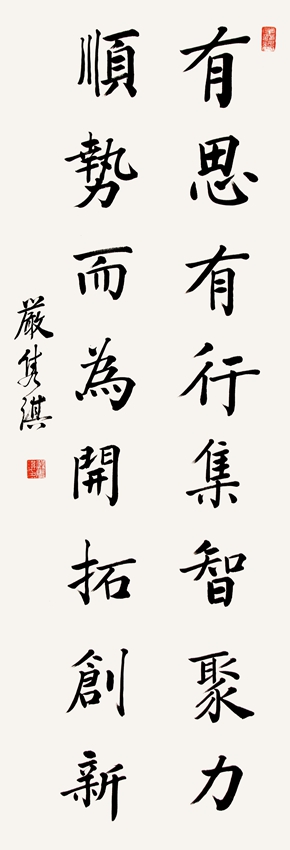 有思有行集智聚力
順勢而為開拓創新
嚴隽淇